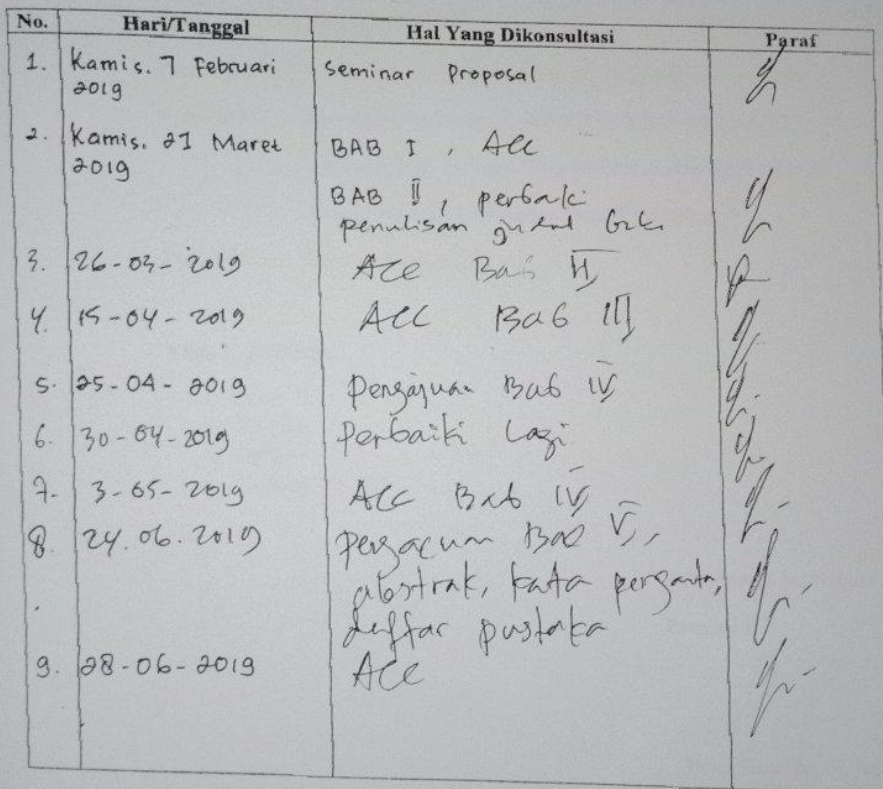 No. Hari/Tanggal Hal Yang Dikonsultasi Paraf
1. Kamis, 7 Februari Seminar Proposal
2019
2. Kamis, 21 Maret BAB I, Acc
2019
BAB II, perbaiki
penulisan judul
3. 26-03-2019 Acc Bab II
4. 15-04-2019 Acc Bab III
5. 25-04-2019 Pengajuan Bab IV
6. 30-04-2019 Perbaiki Lagi
7. 3-05-2019 Acc Bab IV
8. 24.06.2019 Pengajuan Bab V,
abstrak, kata pengantar,
daftar pustaka
9. 28-06-2019 Acc